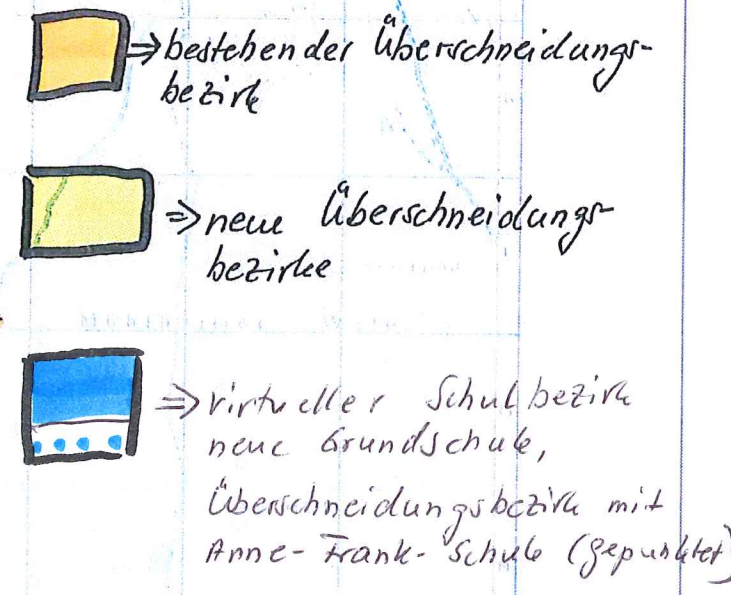 ⇒ bestehender Überschneidungs-
bezirk
⇒ neue Überschneidungs-
bezirke
⇒ virtueller Schulbezirk
neue Grundschule,
Überschneidungsbezirk mit
Anne-Frank-Schule (gepunktet)